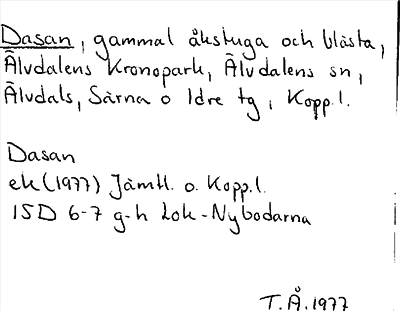 Dasan, gammal åkstuga och blåsta,
Älvdalens Kronopark, Älvdalens sn,
Älvdals, Särna o Idre tg, Kopp.l.
Dasan
ek (1977) Jämtl. o. Kopp.l.
15D 6-7 g-h Lok-Nybodarna
T.Å. 1977